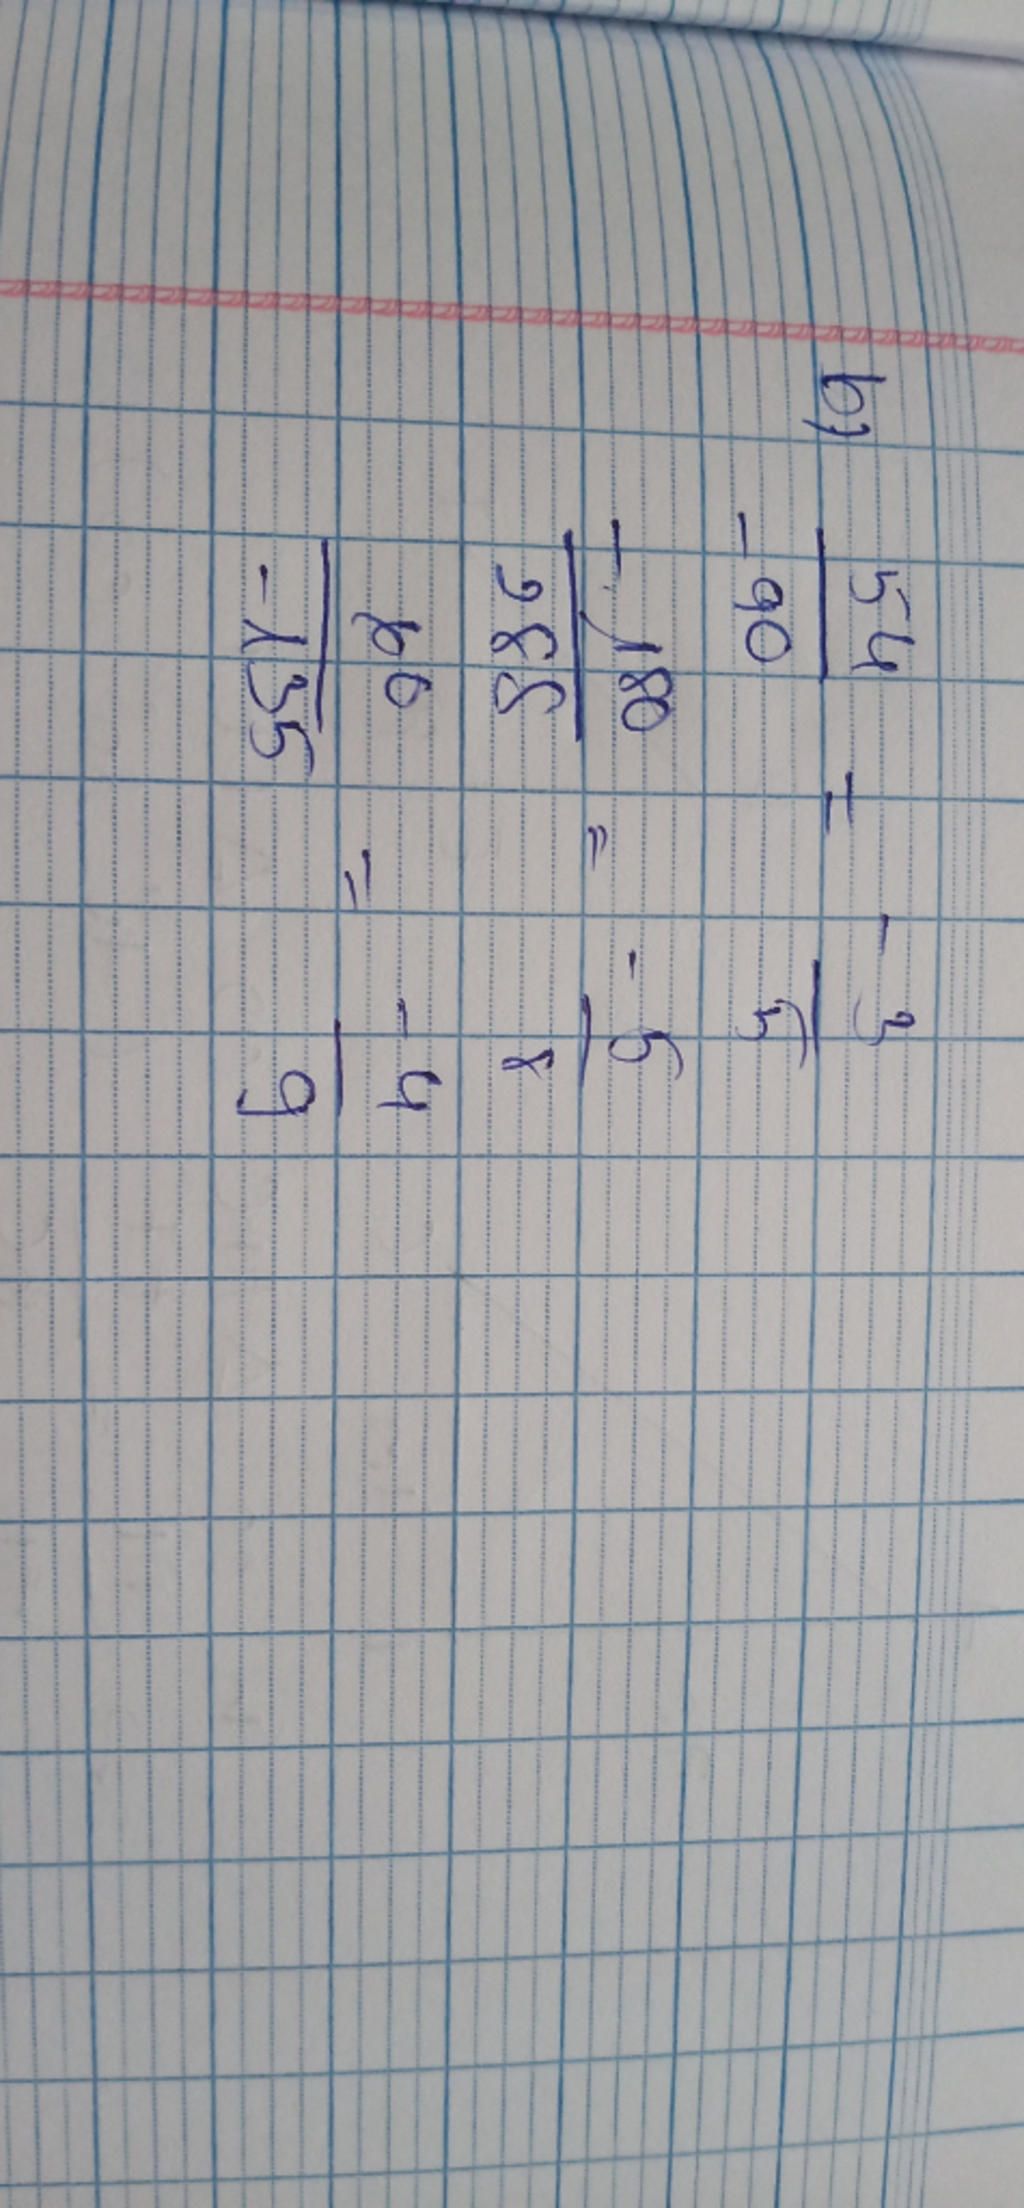 b) 54 / -90 = -3 / 5
-180 / 288 = -5 / 8
60 / -135 = -4 / 9